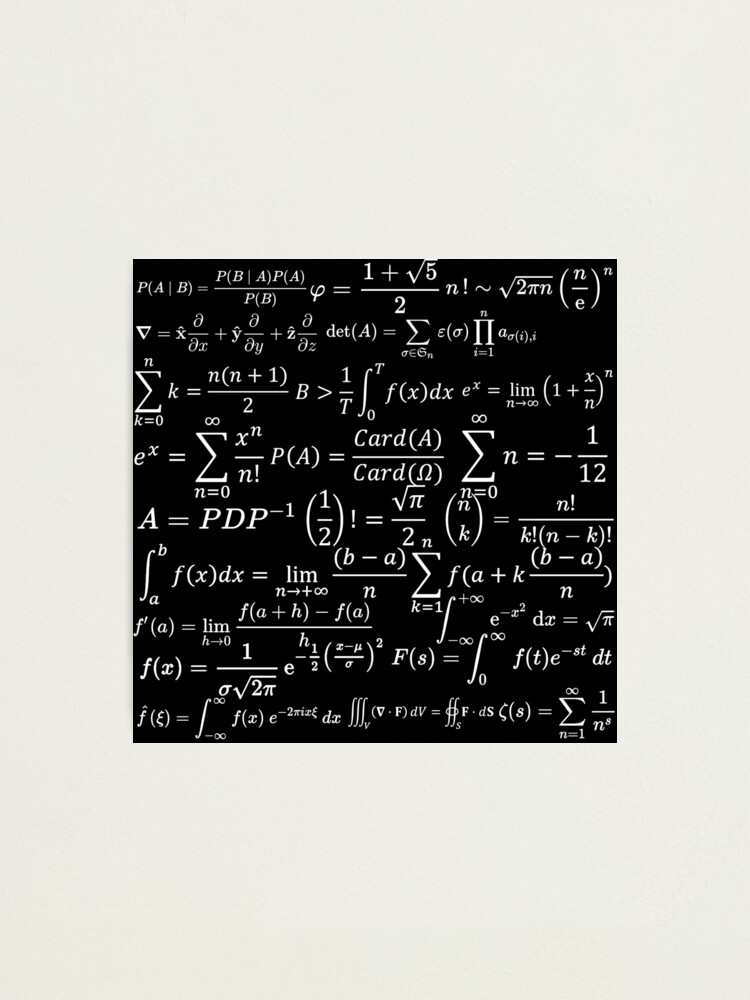 P(A | B) = P(B | A)P(A) / P(B) φ = (1 + √5) / 2 n! ∼ √(2πn) (n/e)ⁿ
∇ = x̂ ∂/∂x + ŷ ∂/∂y + ẑ ∂/∂z det(A) = ∑_{σ∈𝔖ₙ} ε(σ) ∏_{i=1}^{n} a_{σ(i),i}
∑_{k=0}^{n} k = n(n + 1) / 2 B > 1/T ∫_0^T f(x)dx eˣ = lim_{n→∞} (1 + x/n)ⁿ
eˣ = ∑_{n=0}^{∞} xⁿ/n! P(A) = Card(A) / Card(Ω) ∑_{n=0}^{∞} n = − 1/12
A = PDP⁻¹ (1/2)! = √π / 2 (n k) = n! / k!(n − k)!
∫_a^b f(x)dx = lim_{n→+∞} (b − a)/n ∑_{k=1}^{n} f(a + k (b − a)/n)
f′(a) = lim_{h→0} (f(a + h) − f(a)) / h ∫_{−∞}^{+∞} e^{−x²} dx = √π
f(x) = 1 / (σ√(2π)) e^{−1/2 ((x−μ)/σ)²} F(s) = ∫_0^∞ f(t)e^{−st} dt
f̂(ξ) = ∫_{−∞}^{∞} f(x) e^{−2πixξ} dx ∭_V (∇ · F) dV = ∯_S F · dS ζ(s) = ∑_{n=1}^{∞} 1/nˢ